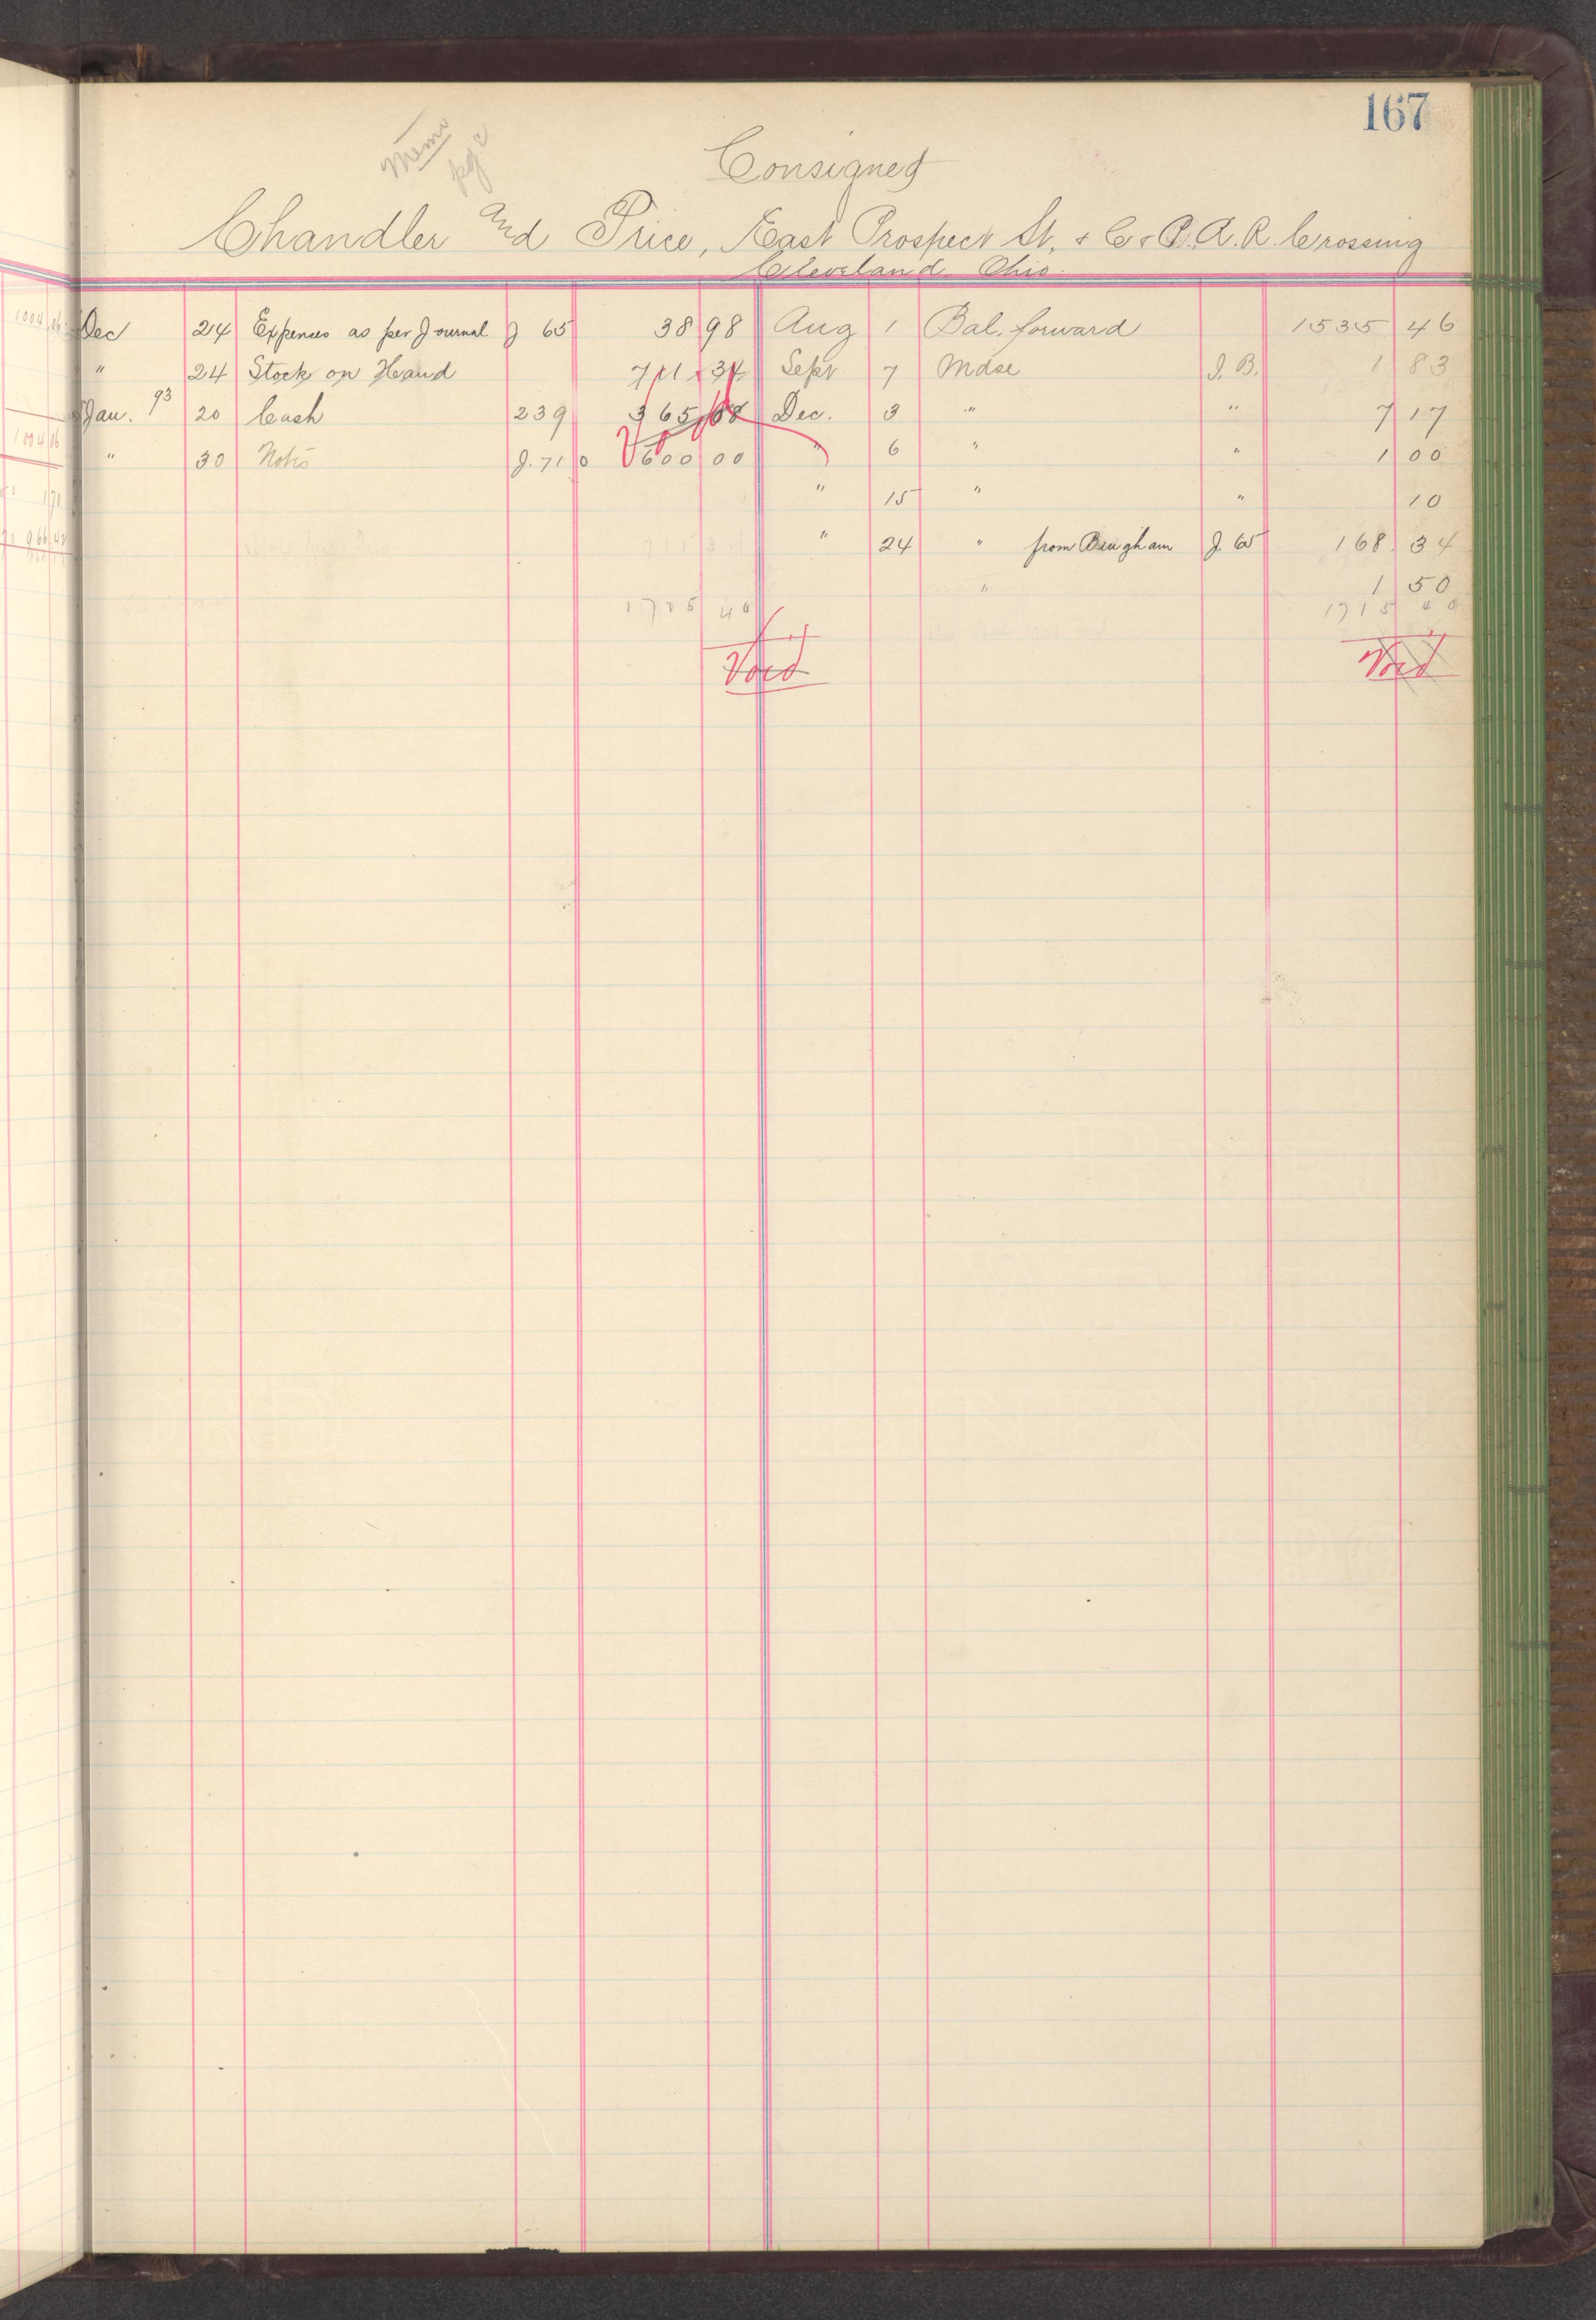 167
Memo
pg
Consigned
Chandler and Price, East Prospect St. & C & P. R. R. Crossing
Cleveland Ohio.
Dec 24 Expences as per Journal J 65 38 98
" 24 Stock on Hand 711 34
Jan. 93 20 Cash 239 365 08
" 30 Notes J. 71 0 600 00
1715 40
Void
Aug 1 Bal. forward 1535 46
Sept 7 Mdse J. B. 1 83
Dec. 3 " " 7 17
" 6 " " 1 00
" 15 " " 10
" 24 " from Bingham J. 65 168 34
" 1 50
1715 40
Void